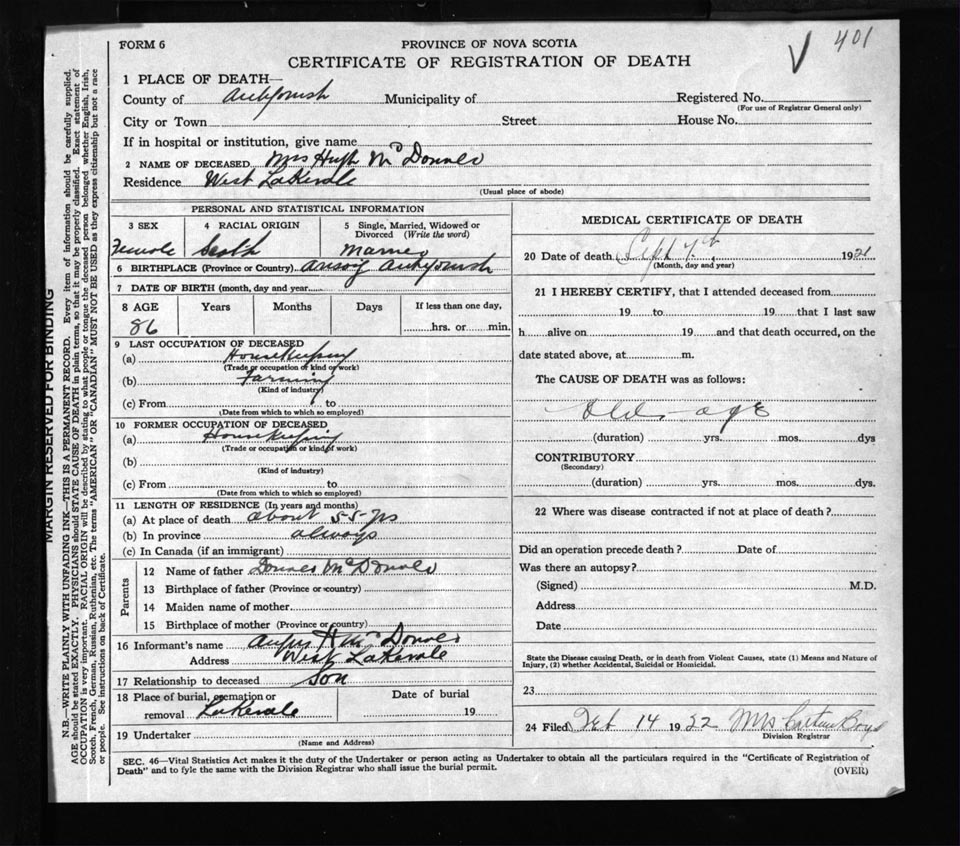 FORM 6
PROVINCE OF NOVA SCOTIA
401
CERTIFICATE OF REGISTRATION OF DEATH
1 PLACE OF DEATH—
County of Antigonish Municipality of Registered No.
(For use of Registrar General only)
City or Town Street House No.
If in hospital or institution, give name
2 NAME OF DECEASED Mrs Hugh McDonald
Residence West Lakevale
(Usual place of abode)
PERSONAL AND STATISTICAL INFORMATION
3 SEX 4 RACIAL ORIGIN 5 Single, Married, Widowed or Divorced (Write the word)
Female Scotch Married
6 BIRTHPLACE (Province or Country) Antigonish
7 DATE OF BIRTH (month, day and year
8 AGE Years Months Days If less than one day,
86 hrs. or min.
9 LAST OCCUPATION OF DECEASED
(a) Housekeeping
(Trade or occupation or kind of work)
(b) Farming
(Kind of industry)
(c) From to
(Date from which to which so employed)
10 FORMER OCCUPATION OF DECEASED
(a) Housekeeping
(Trade or occupation or kind of work)
(b)
(Kind of industry)
(c) From to
(Date from which to which so employed)
11 LENGTH OF RESIDENCE (In years and months)
(a) At place of death about 55 yrs
(b) In province always
(c) In Canada (if an immigrant)
Parents
12 Name of father Donald McDonald
13 Birthplace of father (Province or country)
14 Maiden name of mother
15 Birthplace of mother (Province or country)
16 Informant's name Angus H McDonald
Address West Lakevale
17 Relationship to deceased son
18 Place of burial, cremation or removal Lakevale
Date of burial 19
19 Undertaker
(Name and Address)
MEDICAL CERTIFICATE OF DEATH
20 Date of death Sept 7th 1921
(Month, day and year)
21 I HEREBY CERTIFY, that I attended deceased from
19 to 19 that I last saw
h alive on 19 and that death occurred, on the
date stated above, at m.
The CAUSE OF DEATH was as follows:
Old age
(duration) yrs. mos. dys
CONTRIBUTORY
(Secondary)
(duration) yrs. mos. dys.
22 Where was disease contracted if not at place of death?
Did an operation precede death? Date of
Was there an autopsy?
(Signed) M.D.
Address
Date
State the Disease causing Death, or in death from Violent Causes, state (1) Means and Nature of
Injury, (2) whether Accidental, Suicidal or Homicidal.
23
24 Filed Feb 14 1922 Mrs Boyd
Division Registrar
SEC. 46—Vital Statistics Act makes it the duty of the Undertaker or person acting as Undertaker to obtain all the particulars required in the "Certificate of Registration of
Death" and to fyle the same with the Division Registrar who shall issue the burial permit.
(OVER)
MARGIN RESERVED FOR BINDING
N.B.—WRITE PLAINLY WITH UNFADING INK—THIS IS A PERMANENT RECORD. Every item of information should be carefully supplied.
AGE should be stated EXACTLY. PHYSICIANS should STATE CAUSE OF DEATH in plain terms, so that it may be properly classified. Exact statement of
OCCUPATION is very important. RACIAL ORIGIN will be described by stating to what people or tongue the deceased person belonged whether English, Irish,
Scotch, French, German, Russian, Ruthenian, etc. The terms "AMERICAN" OR "CANADIAN" MUST NOT BE USED as they express citizenship but not a race
or people. See instructions on back of Certificate.